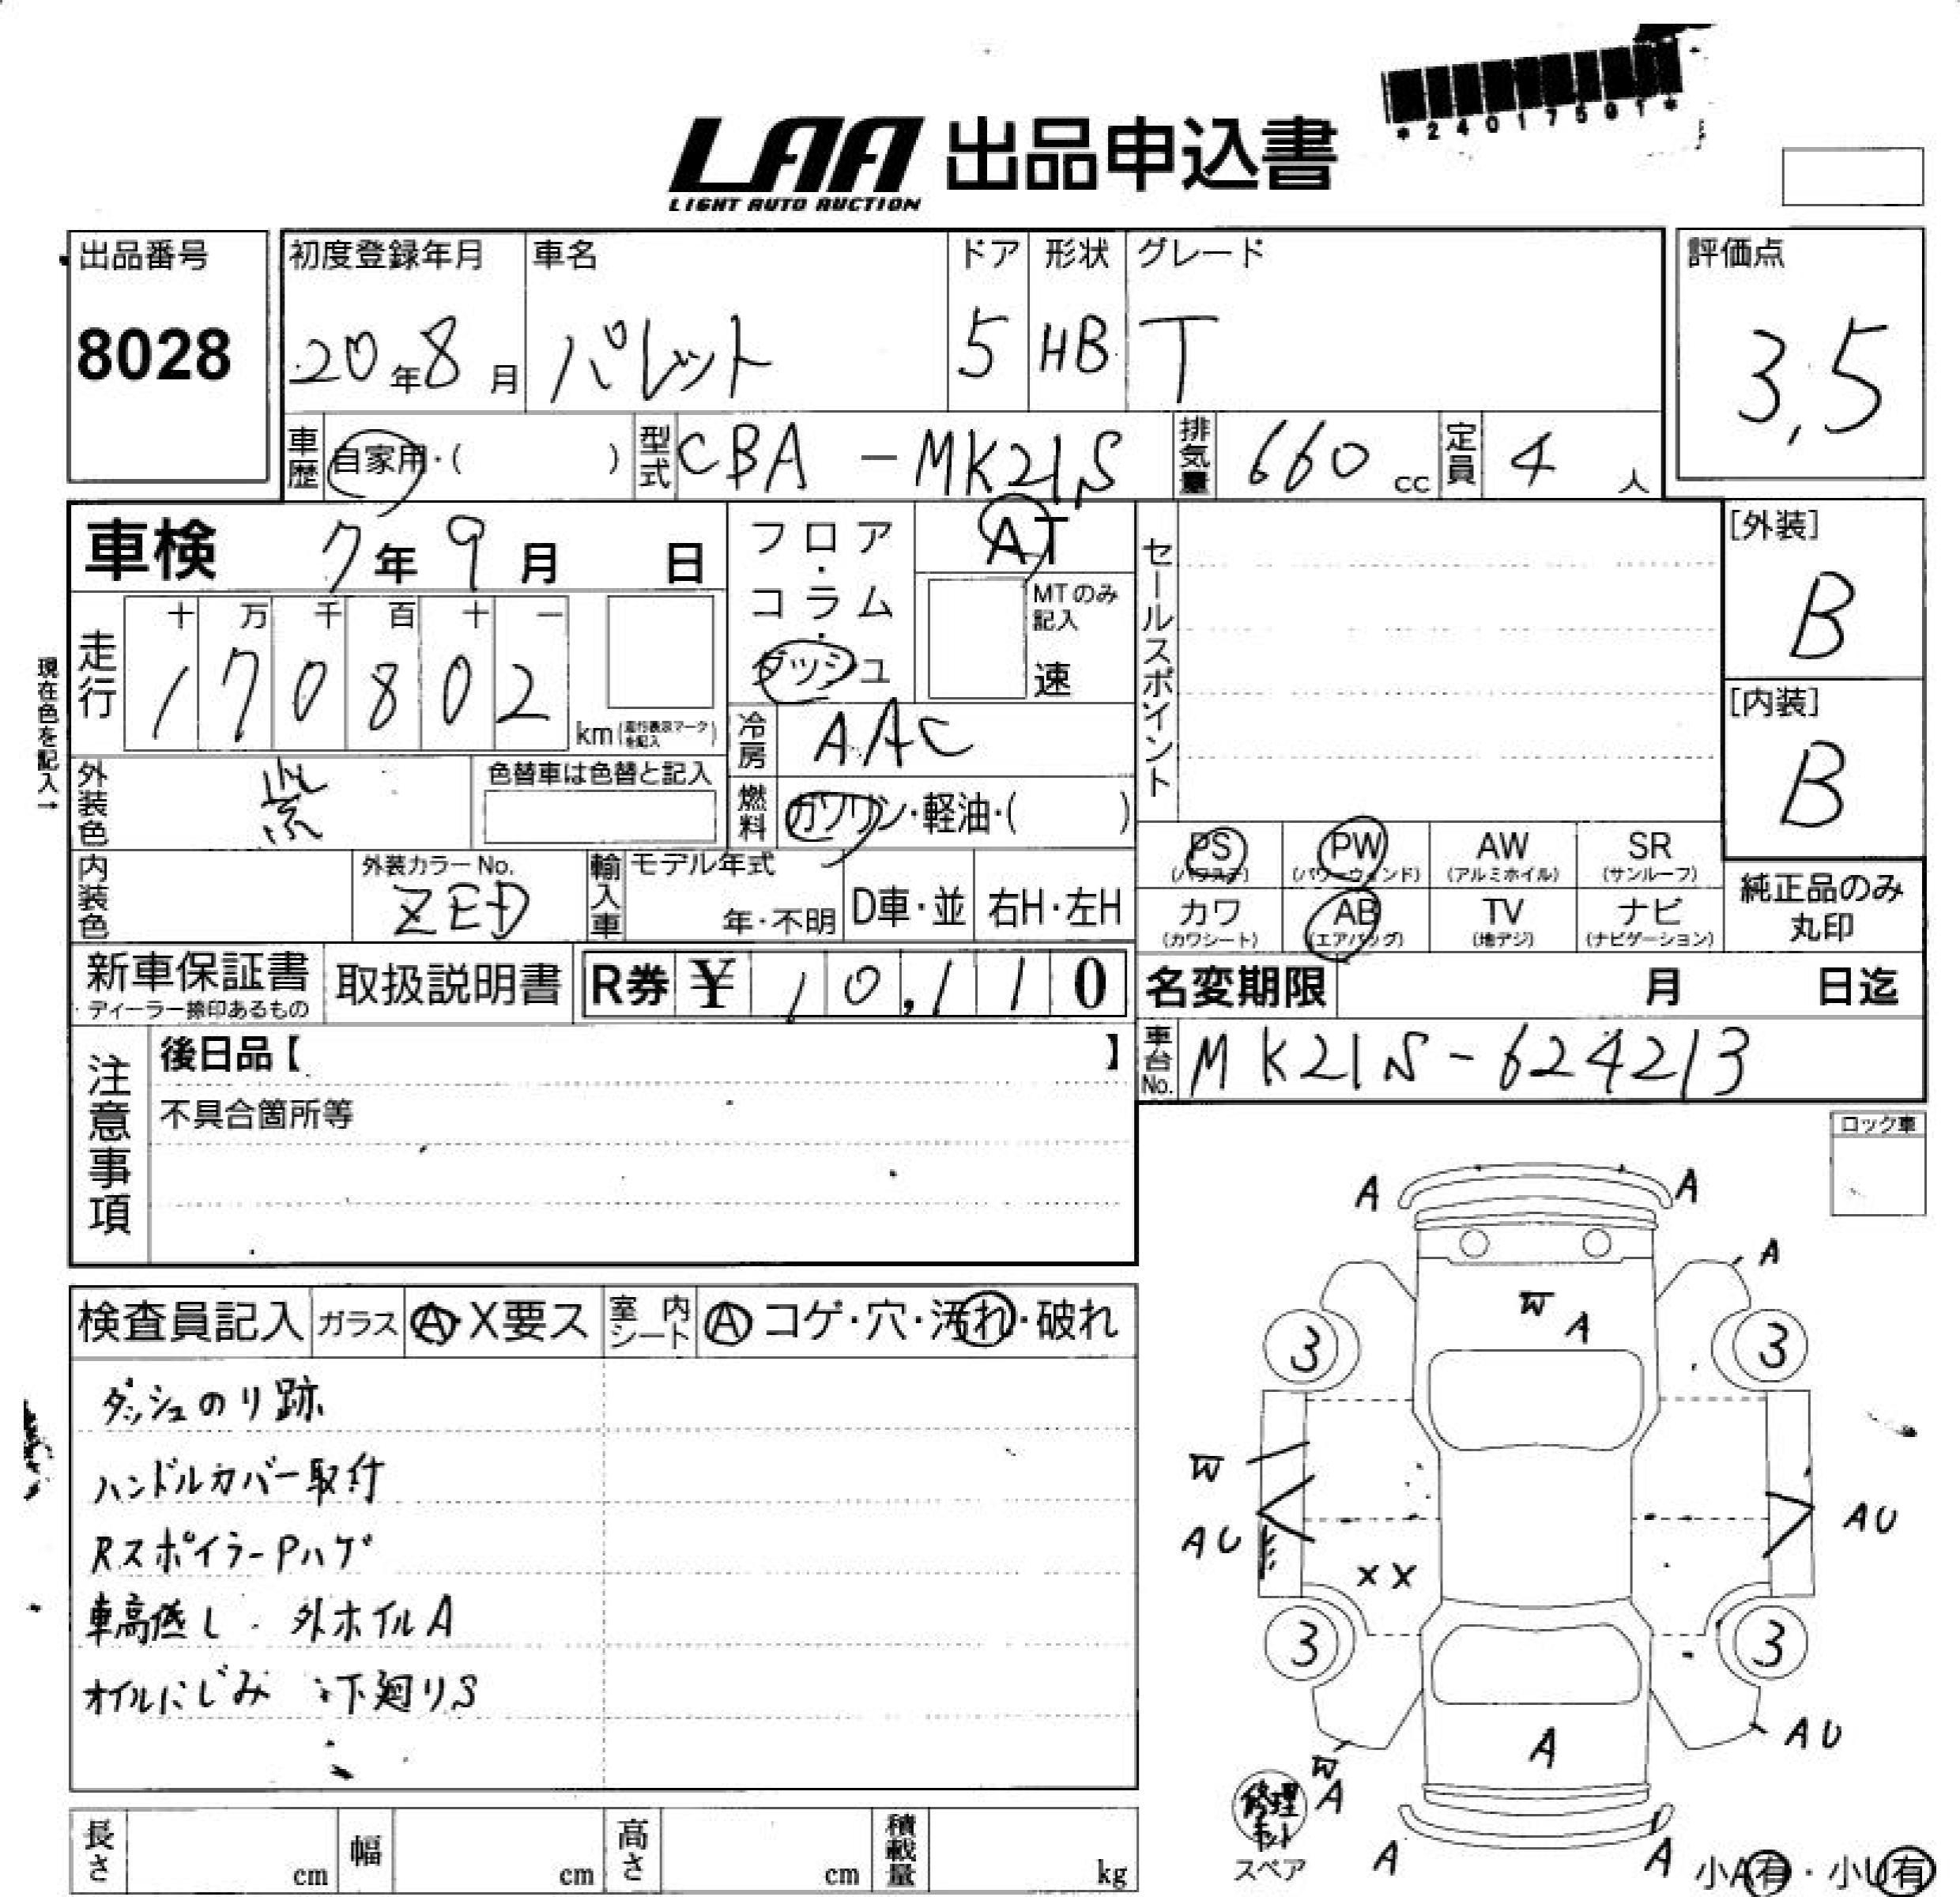 *24017501*
LAA 出品申込書
LIGHT AUTO AUCTION
出品番号 初度登録年月 車名 ドア 形状 グレード 評価点
8028 20年8月 パレット 5 HB T 3,5
車歴 自家用・( ) 型式 CBA-MK21S 排気量 660 cc 定員 4 人
車検 7年9月 日 フロア・コラム・ダッシュ AT セールスポイント [外装]
B
MTのみ記入
速
十 万 千 百 十 一
走行 170802 km (走行表示マークを記入)
[内装]
B
現在色を記入→
冷房 AAC
外装色 紫 色替車は色替と記入
燃料 ガソリン・軽油・( )
PS PW AW SR
(パワステ) (パワーウィンド) (アルミホイル) (サンルーフ)
内装色 外装カラーNo. ZED 輸入車 モデル年式 年・不明 D車・並 右H・左H
カワ AB TV ナビ
(カワシート) (エアバッグ) (地デジ) (ナビゲーション)
純正品のみ
丸印
新車保証書 取扱説明書 R券 ¥ 10,110 名変期限 月 日迄
・ディーラー捺印あるもの
注意事項 後日品【 】 車台No. MK21S-624213
不具合箇所等
ロック車
A A
A
検査員記入 ガラス A・X要ス 室内シート A コゲ・穴・汚れ・破れ
W A
3 3
ダッシュのり跡
ハンドルカバー取付
W
RスポイラーPハゲ
AU AU
XX
車高低し 外ホイルA
3 3
オイルにじみ 下廻りS
AU
A
W
A
修理キット
スペア
A A
小A有・小U有
長さ cm 幅 cm 高さ cm 積載量 kg